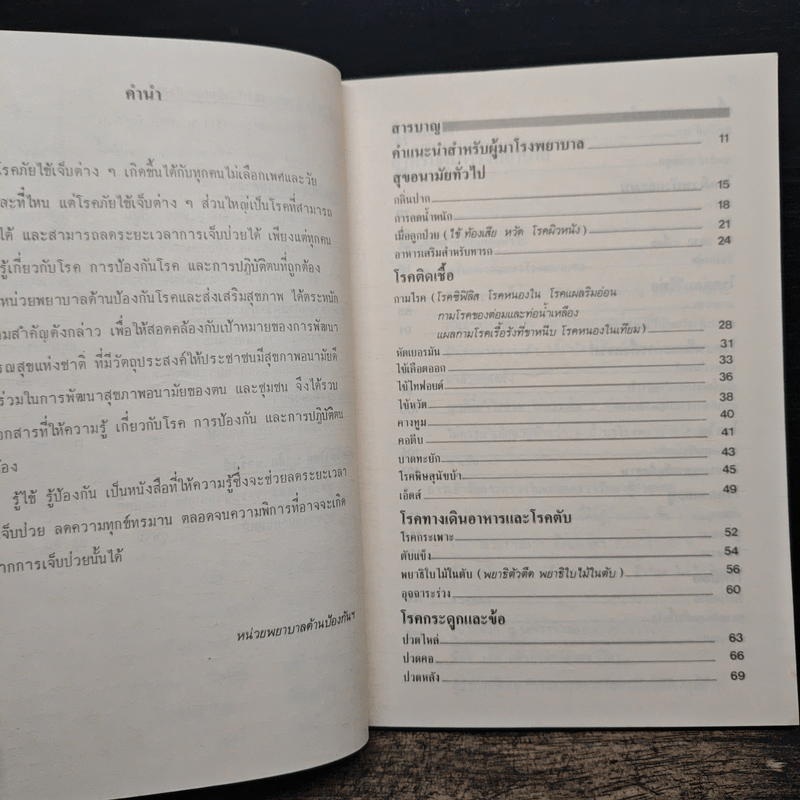 คำนำ
โรคภัยไข้เจ็บต่าง ๆ เกิดขึ้นได้กับทุกคนไม่เลือกเพศและวัย
ละที่ไหน แต่โรคภัยไข้เจ็บต่าง ๆ ส่วนใหญ่เป็นโรคที่สามารถ
ได้ และสามารถลดระยะเวลาการเจ็บป่วยได้ เพียงแต่ทุกคน
รู้เกี่ยวกับโรค การป้องกันโรค และการปฏิบัติตนที่ถูกต้อง
หน่วยพยาบาลด้านป้องกันโรคและส่งเสริมสุขภาพ ได้ตระหนัก
มสำคัญดังกล่าว เพื่อให้สอดคล้องกับเป้าหมายของการพัฒนา
รณสุขแห่งชาติ ที่มีวัตถุประสงค์ให้ประชาชนมีสุขภาพอนามัยดี
ร่วมในการพัฒนาสุขภาพอนามัยของตน และชุมชน จึงได้รวบ
อกสารที่ให้ความรู้ เกี่ยวกับโรค การป้องกัน และการปฏิบัติตน
อง
รู้ไข้ รู้ป้องกัน เป็นหนังสือที่ให้ความรู้ซึ่งจะช่วยลดระยะเวลา
เจ็บป่วย ลดความทุกข์ทรมาน ตลอดจนความพิการที่อาจจะเกิด
ากการเจ็บป่วยนั้นได้
หน่วยพยาบาลด้านป้องกันฯ
สารบาญ
คำแนะนำสำหรับผู้มาโรงพยาบาล 11
สุขอนามัยทั่วไป
กลิ่นปาก 15
การลดน้ำหนัก 18
เมื่อลูกป่วย (ไข้ ท้องเสีย หวัด โรคผิวหนัง) 21
อาหารเสริมสำหรับทารก 24
โรคติดเชื้อ
กามโรค (โรคซิฟิลิส โรคหนองใน โรคแผลริมอ่อน
กามโรคของต่อมและท่อน้ำเหลือง
แผลกามโรคเรื้อรังที่ขาหนีบ โรคหนองในเทียม) 28
หัดเยอรมัน 31
ไข้เลือดออก 33
ไข้ไทฟอยด์ 36
ไข้หวัด 38
คางทูม 40
คอตีบ 41
บาดทะยัก 43
โรคพิษสุนัขบ้า 45
เอ็ดส์ 49
โรคทางเดินอาหารและโรคตับ
โรคกระเพาะ 52
ตับแข็ง 54
พยาธิใบไม้ในตับ (พยาธิตัวตืด พยาธิใบไม้ในตับ) 56
อุจจาระร่วง 60
โรคกระดูกและข้อ
ปวดไหล่ 63
ปวดคอ 66
ปวดหลัง 69